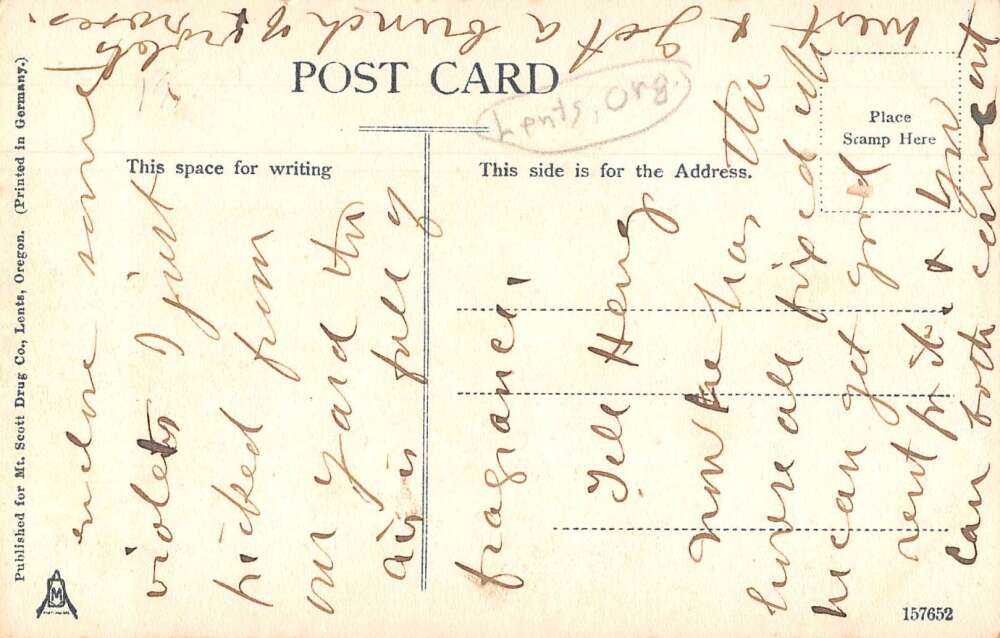 POST CARD
Lents, Org.
This space for writing
This side is for the Address.
Place
Stamp Here
Published for Mt. Scott Drug Co., Lents, Oregon. (Printed in Germany.)
enclose some
violets I just
picked from
our yard the
air is full of
fragrance!
Tell Henry
now he has the
house all fixed up
he can get good
rent for it. & you
can both come out
west & get a bunch of
roses.
M
157652